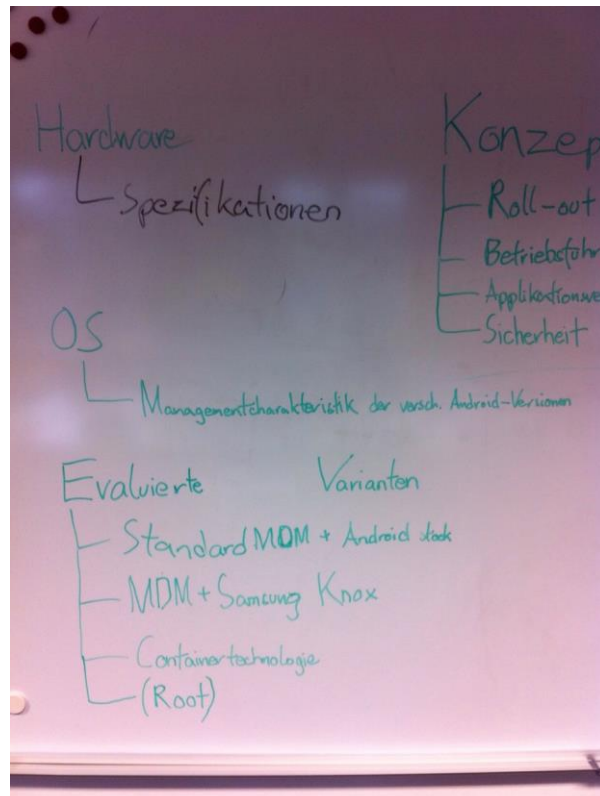 Hardware
Spezifikationen
OS
Managementcharakteristik der versch. Android-Versionen
Evaluierte Varianten
Standard MDM + Android stock
MDM + Samsung Knox
Containertechnologie
(Root)
Konzep
Roll-out
Betriebsführ
Applikationsve
Sicherheit